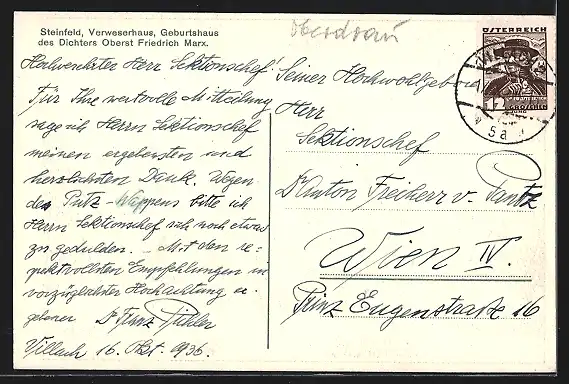 Steinfeld, Verweserhaus, Geburtshaus
des Dichters Oberst Friedrich Marx.
Oberdrau
Hochverehrter Herr Sektionschef!
Für Ihre wertvolle Mitteilung
sage ich Herrn Sektionschef
meinen ergebensten und
herzlichsten Dank. Wegen
des Putz-Wappens bitte ich
Herrn Sektionschef sich noch etwas
zu gedulden. Mit den re-
spektvollsten Empfehlungen in
vorzüglichster Hochachtung er-
gebener
Villach 16. Okt. 1936.
Seiner Hochwohlgeboren
Herr
Sektionschef
Dr Anton Freiherr v. Pantz
Wien IV.
Prinz Eugenstraße 16
ÖSTERREICH
12
GROSCHEN
5a